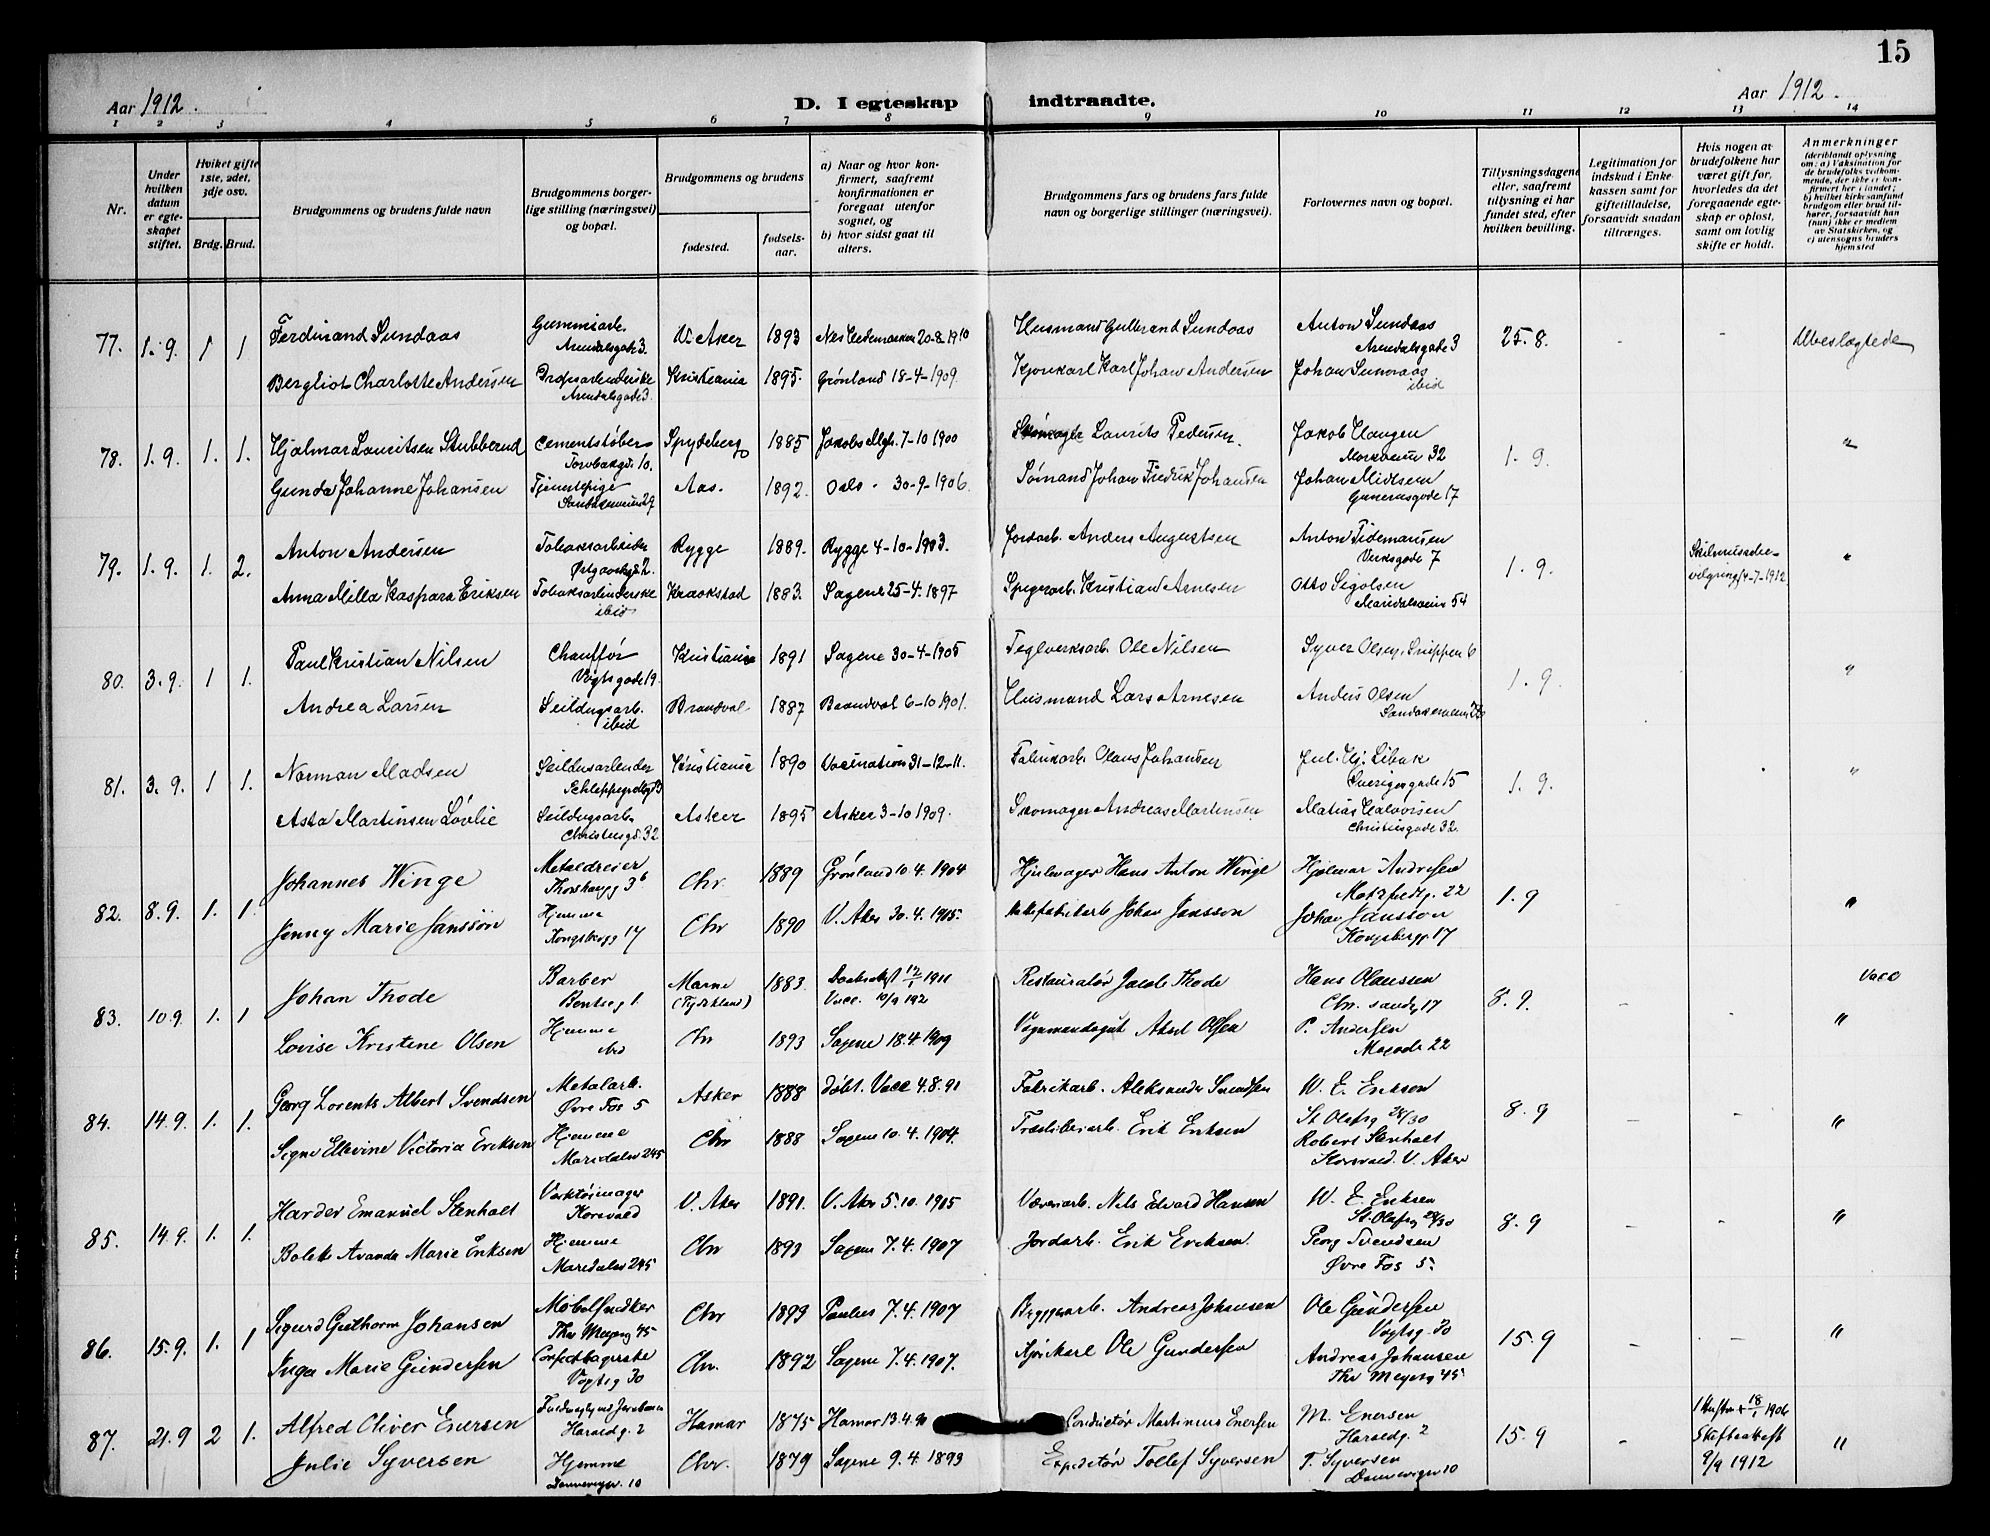 15
Aar 1912. D. I egteskap indtraadte. Aar 1912.
1 2 3 4 5 6 7 8 9 10 11 12 13 14
Nr.
Under hvilken datum er egteskapet stiftet.
Hvilket gifte 1ste, 2det, 3dje osv.
Brdg. Brud.
Brudgommens og brudens fulde navn
Brudgommens borgerlige stilling (næringsvei) og bopæl.
Brudgommens og brudens
fødested. fødselsaar.
a) Naar og hvor konfirmert, saafremt konfirmationen er foregaat utenfor sognet, og
b) hvor sidst gaat til alters.
Brudgommens fars og brudens fars fulde navn og borgerlige stillinger (næringsvei).
Forlovernes navn og bopæl.
Tillysningsdagene eller, saafremt tillysning ei har fundet sted, efter hvilken bevilling.
Legitimation for indskud i Enkekassen samt for giftetilladelse, forsaavidt saadan tiltrænges.
Hvis nogen av brudefolkene har været gift før, hvorledes da det foregaaende egteskap er opløst, samt om lovlig skifte er holdt.
Anmerkninger
(deriblandt oplysning om: a) Vaksination for de brudefolks vedkommende, der ikke er konfirmert her i landet; b) hvilket kirkesamfund brudgom eller brud tilhører, forsaavidt han (hun) ikke er medlem av Statskirken, og c) utensogns bruders hjemsted
77. 1.9. 1 1 Ferdinand Sundaas Gummiarb. Arendalsgade 3. V. Aker 1893 Nes Hedemarken 20-8-1910 Husmand Gulbrand Sundaas Anton Sundaas Arendalsgade 3 25.8. Ubeslægtede
Bergliot Charlotte Andersen Arendalsgade 3 Kristiania 1895. Grønland 18-4-1909. Kjørekarl Karl Johan Andersen Johan Sundaas ibid
78. 1.9. 1. 1. Hjalmar Lauritsen Stubberud Cementstøber Torvbakgd. 10. Spydeberg 1885 Jakobs Mgh. 7-10 1900 Skomager Laurits Pedersen. Jakob Haugen 32 1. 9. "
Gunda Johanne Johansen Tjenestepige 29 Aas. 1892. Oslo - 30-9-1906. Sømand Johan Fredrik Johansen Johan Midtsem 17
79. 1.9. 1. 2. Anton Andersen Tobaksarbeider Rygge 1889. Rygge 4-10-1903. Jordarb. Anders Augustsen Anton Tidemansen Verksgade 7 1. 9. Skilsmissebevilgning 4-7-1912 "
Anna Milla Kaspara Eriksen Tobaksarbeiderske ibid Kraakstad 1883. Sagene 25-4-1897 Kristian Arnesen Otto Maridalsveien 54
80. 3.9. 1 1. Paul Kristian Nilsen Chauffør Vogtsgade 19. Kristiania 1891 Sagene 30-4-1905 Teglverksarb. Ole Nilsen Syver Olsen, Snippen 6 1. 9. "
Andrea Larsen Seildugsarb. ibid Brandval 1887 Brandval 6-10 1901. Husmand Lars Arnesen Anders Olsen
81. 3.9. 1 1. Norman Madsen Seildugsarbeider Kristiania 1890 Vaccination 31-12-11. Fabrikarb. Olaus Johansen Jul. Hj. Libak Sverigesgade 15 1. 9. "
Asta Martinsen Løvlie Seildugsarb. Christiesgd. 32 Asker 1895 Asker 3-10 1909. Skomager Andreas Martinsen Matias Halvorsen Christiesgade 32.
82. 8.9. 1. 1. Johannes Winge Metaldreier 3b Chr. 1889 Grønland 10.4. 1904 Hjulmager Hans Anton Winge Hjalmar Andresen 22 1.9 "
Jenny Marie Jansson Hjemme Kongsbergg 17 Chr 1890 V. Aker 30.4. 1905. Johan Jansson Johan Jansson Kongsbergg 17
83. 10.9. 1. 1 Johan Thode Barber Bentseg 1 Marne (Tydskland) 1883. Daabsatt 12/1 1911 Vacc. Restauratør Jacob Thode Hans Olaussen Chr. sandg 17 8. 9. Vacc
Lovise Kristine Olsen Hjemme ibid Chr 1893 Sagene 18.4.1909 Vognmandsgut Aksel Olsen P. Andersen 22 "
84. 14.9. 1. 1. Georg Lorents Albert Svendsen Metalarb. Øvre Fos 5 Asker 1888 Døbt. Vacc 4.8.91 Fabrikarb. Aleksander Svendsen W. E. Eriksen St Olafsg 28/30 8. 9 "
Signe Ellevine Victoria Eriksen Hjemme Maridalsv 245 Chr 1888 Sagene 10.4.1904. Træsliberiarb. Erik Eriksen Robert Stenholt Korsvold. V. Aker
85. 14.9. 1. 1. Harder Emanuel Stenholt Verktøimager Korsvold V. Aker 1891. V. Aker 5.10.1905 Væveriarb. Nils Edvard Hansen W. E. Eriksen St. Olafsg 28/30 8. 9 "
Bolette Avanda Marie Eriksen Hjemme Maridalsv 245 Chr 1893 Sagene 7.4.1907 Jordarb. Erik Eriksen. Georg Svendsen Øvre Fos 5.
86. 15.9. 1. 1 Sigurd Guthorm Johansen Møbelsnedker Ths Meyersg 45 Chr 1893 Paulus 7.4.1907 Byggearb. Andreas Johansen Ole Gundersen Vogtsg 30 15.9 "
Inga Marie Gundersen Vogtsg 30 Chr. 1892 Sagene 7.4.1907. Kjørekarl Ole Gundersen Andreas Johansen Ths Meyersg 45
87. 21.9 2 1. Alfred Oliver Enersen Haraldsg. 2 Hamar 1875 Hamar 13.4.90 Conductør Martinius Enersen M. Enersen Haraldsg. 2 15.9 1 hustru + 18/1 1906 Skifteattest 9/9 1912 "
Julie Syversen Hjemme Dannevigsv. 10 Chr. 1879 Sagene 9.4.1893 Expeditør Tollef Syversen T. Syversen Dannevigsv 10